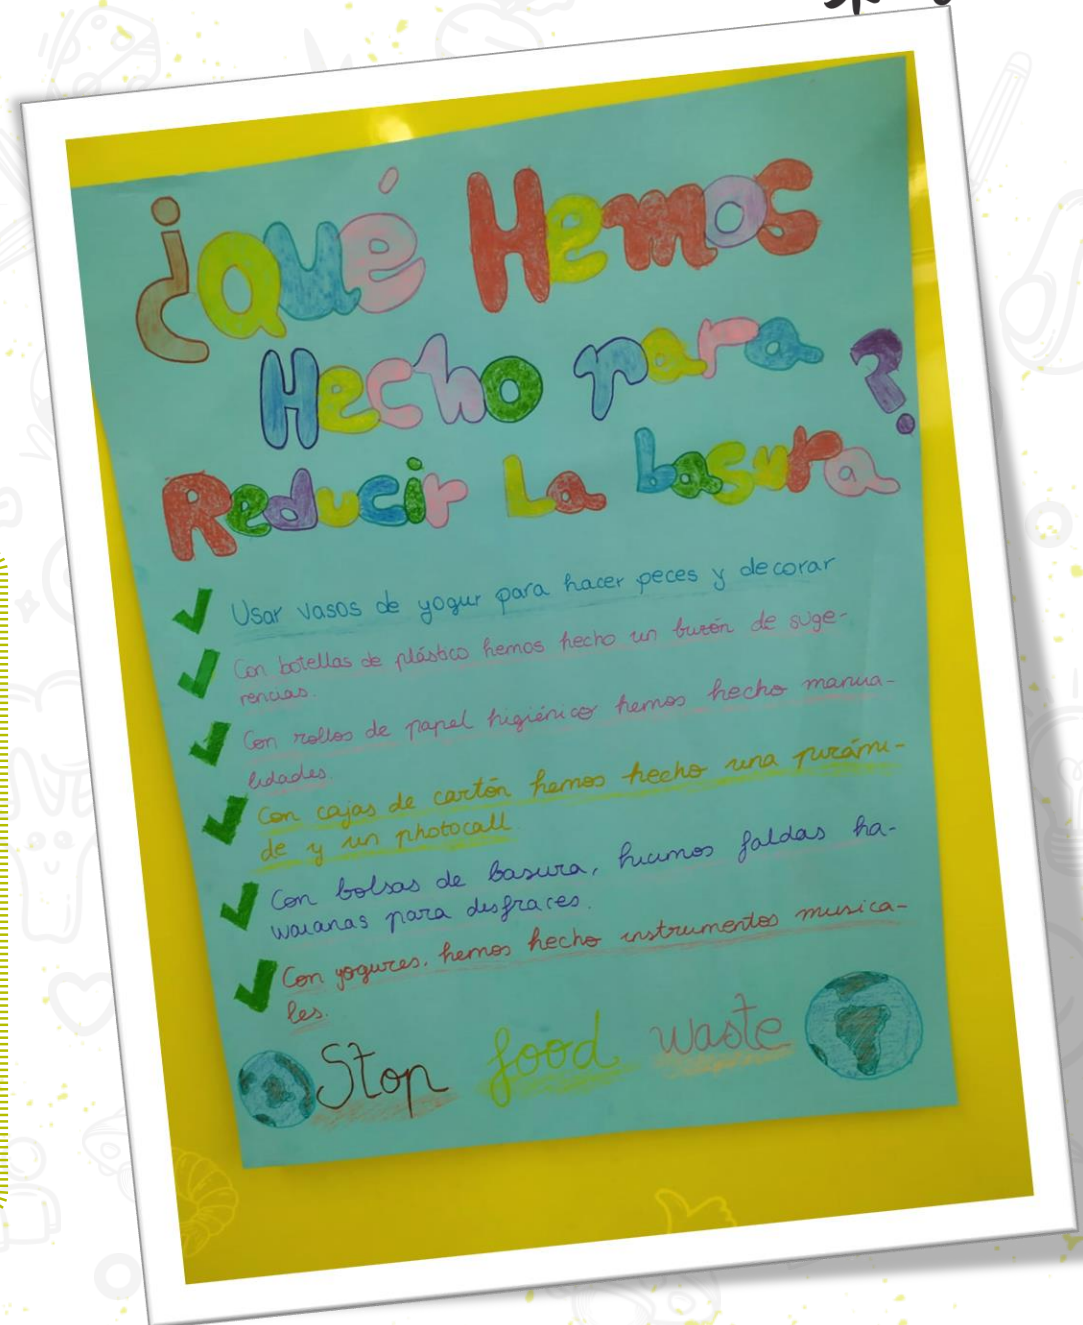 ¿Qué Hemos
Hecho para
Reducir La basura?
Usar vasos de yogur para hacer peces y decorar
Con botellas de plástico hemos hecho un buzón de suge-
rencias.
Con rollos de papel higiénico hemos hecho manua-
lidades.
Con cajas de cartón hemos hecho una pirámi-
de y un photocall.
Con bolsas de basura, hicimos faldas ha-
waianas para disfraces.
Con yogures, hemos hecho instrumentos musica-
les.
Stop food waste